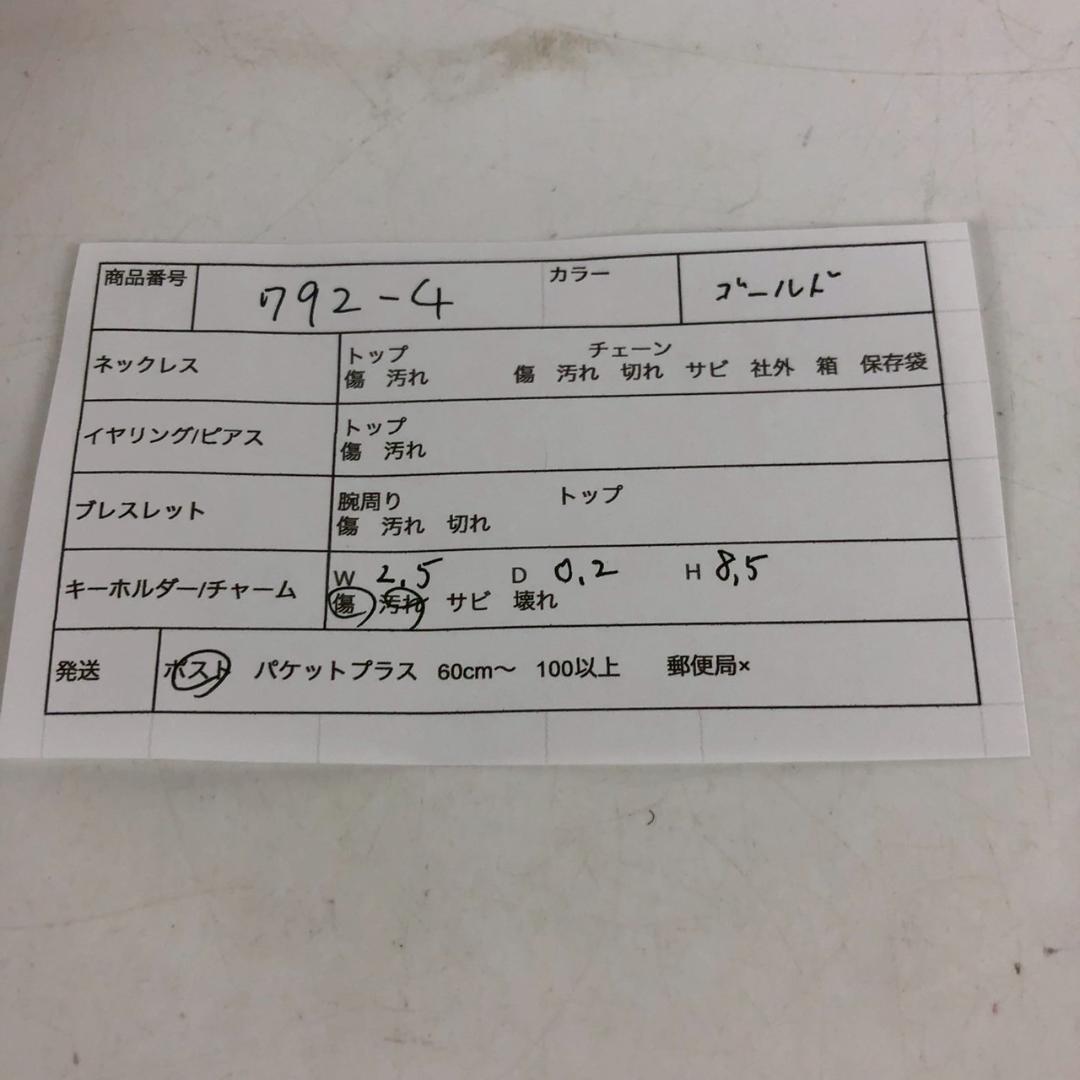 商品番号 792-4 カラー ゴールド
ネックレス
トップ チェーン
傷 汚れ 傷 汚れ 切れ サビ 社外 箱 保存袋
イヤリング/ピアス
トップ
傷 汚れ
ブレスレット
腕周り トップ
傷 汚れ 切れ
キーホルダー/チャーム
W 2,5 D 0,2 H 8,5
傷 汚れ サビ 壊れ
発送 ポスト パケットプラス 60cm～ 100以上 郵便局×